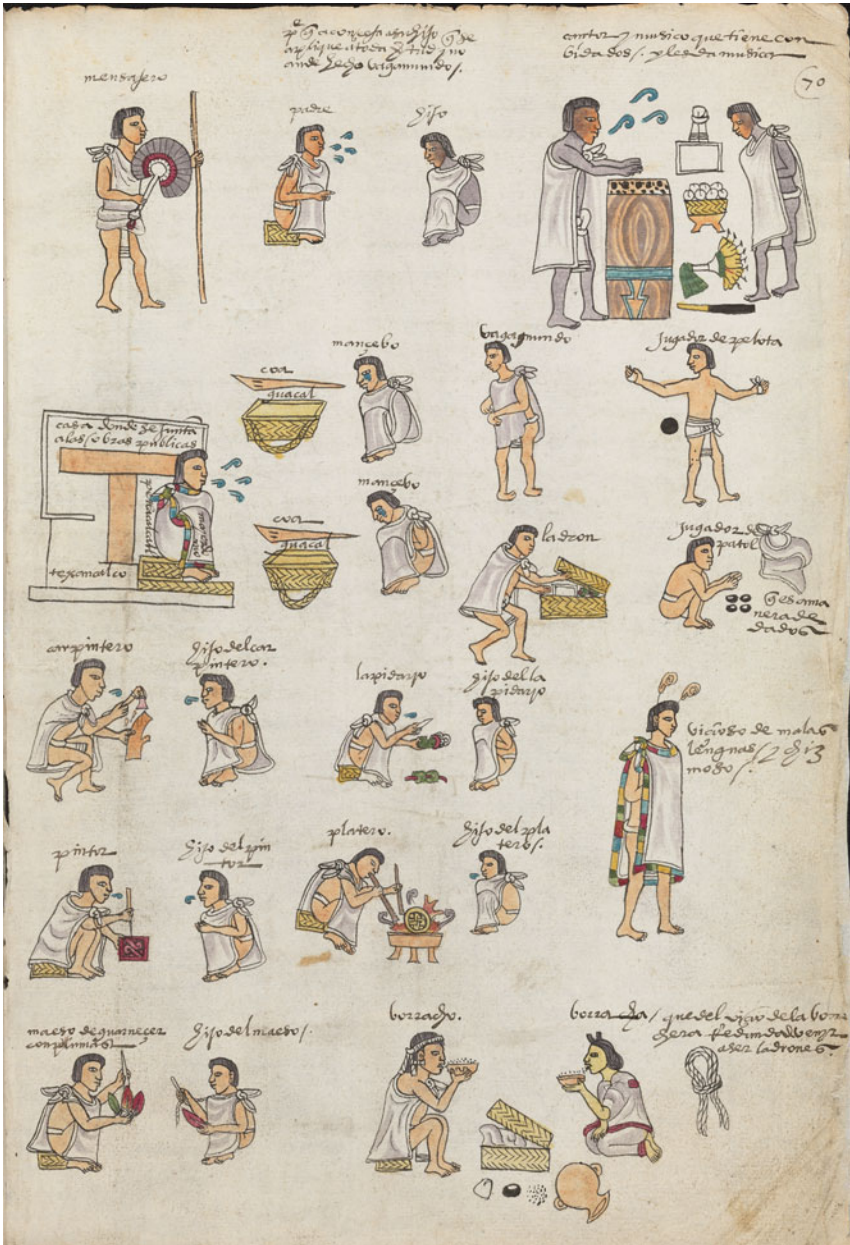 padre q̃ aconseja a su hijo q̃ se
aplique a toda virtud y no
ande hecho vagamundo /.
cantor y musico que tiene con
bidados /. y les da musica
70
mensajero
padre
hijo
mançebo
vagamundo
Jugador de pelota
coa
guacal
casa donde se junta
a las / obras publicas
petlacalcatl
mayordomo
texancalco
mançebo
coa
guacal
ladron
Jugador de
patol
q̃ es a ma
nera de
dados
carpintero
hijo del car
pintero.
lapidario
hijo del la
pidario
viçioso de malas
lenguas / y chiz
moso /.
pintor
hijo del pin
tor
platero.
hijo del pla
tero /.
maeso de guarneçer
con plumas
hijo del maeso /.
borracho.
borracha / que del viçio de la borra
chera
a ser ladrones.